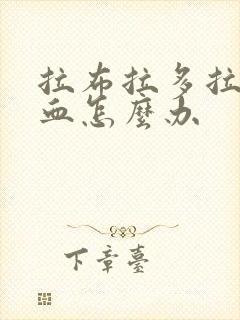 拉布拉多拉
血怎麼办
下章臺